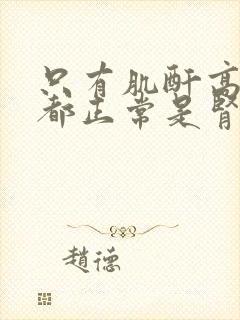 只有肌酐高
都正常是肾
趙德